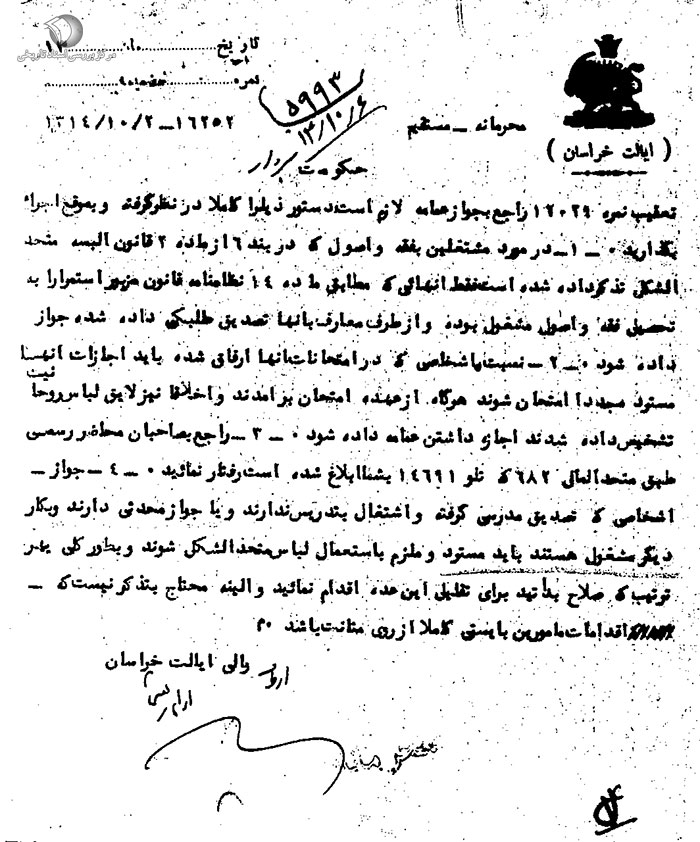 مرکز بررسی اسناد تاریخی
تاریخ
نمره
۵۹۹۳
۱۳/۱۰/۶
۱۶۲۵۲ ــ ۱۳۱۴/۱۰/۲
محرمانه ــ مستقیم
( ایالت خراسان )
حکومت
تعقیب نمره ۱۲۰۲۹ راجع بجواز عمامه لازم است دستور ذیل را کاملا در نظر گرفته و بموقع اجراء
بگذارید ۰ ــ ۱ ــ در مورد مشتغلین بفقه و اصول که در بند ۶ از ماده ۲ قانون البسه متحد
الشکل تذکر داده شده است فقط انهائی که مطابق ماده ۱۴ نظامنامه قانون مزبور استمرارا به
تحصیل فقه و اصول مشغول بوده و از طرف معارف بانها تصدیق طلبگی داده شده جواز
داده شود ۰ ــ ۲ ــ نسبت باشخاصی که در امتحانات انها ارفاق شده باید اجازات انها
مسترد مجددا امتحان شوند هرگاه از عهده امتحان برامدند و اخلاقا نیز لایق لباس روحا نیت
تشخیص داده شدند اجازه داشتن عمامه داده شود ۰ ــ ۳ ــ راجع بصاحبان محاضر رسمی
طبق متحدالمال ۶۸۲ که تلو ۱۴۶۹۱ بشما ابلاغ شده است رفتار نمائید ۰ ــ ۴ ــ جواز ــ
اشخاصی که تصدیق مدرسی گرفته و اشتغال بتدریس ندارند و یا جواز محدثی دارند و بکار
دیگر مشغول هستند باید مسترد و ملزم باستعمال لباس متحدالشکل شوند و بطور کلی بهر
ترتیب که صلاح بدانید برای تقلیل این عده اقدام نمائید و البته محتاج بتذکر نیست که ــ
اقدامات مامورین بایستی کاملا از روی متانت باشد ۰م
والی ایالت خراسان